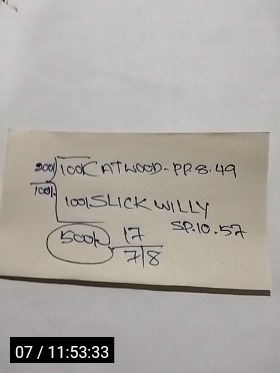 200/ 100K CATWOOD-PP.8.49
100k
100k SLICK WILLY
SP.10.57
500k 17
7/8
07 / 11:53:33